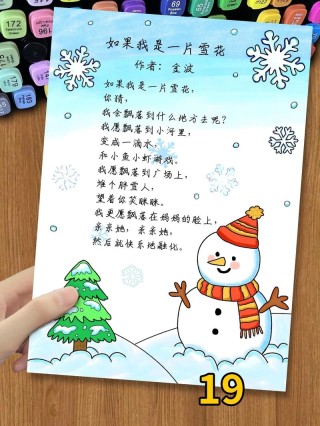 如果我是一片雪花
作者：金波
如果我是一片雪花，
你猜，
我会飘落到什么地方去呢？
我愿飘落到小河里，
变成一滴水，
和小鱼小虾游戏。
我愿飘落到广场上，
堆个胖雪人，
望着你笑眯眯。
我更愿飘落在妈妈的脸上，
亲亲她，亲亲她，
然后就快乐地融化。
19